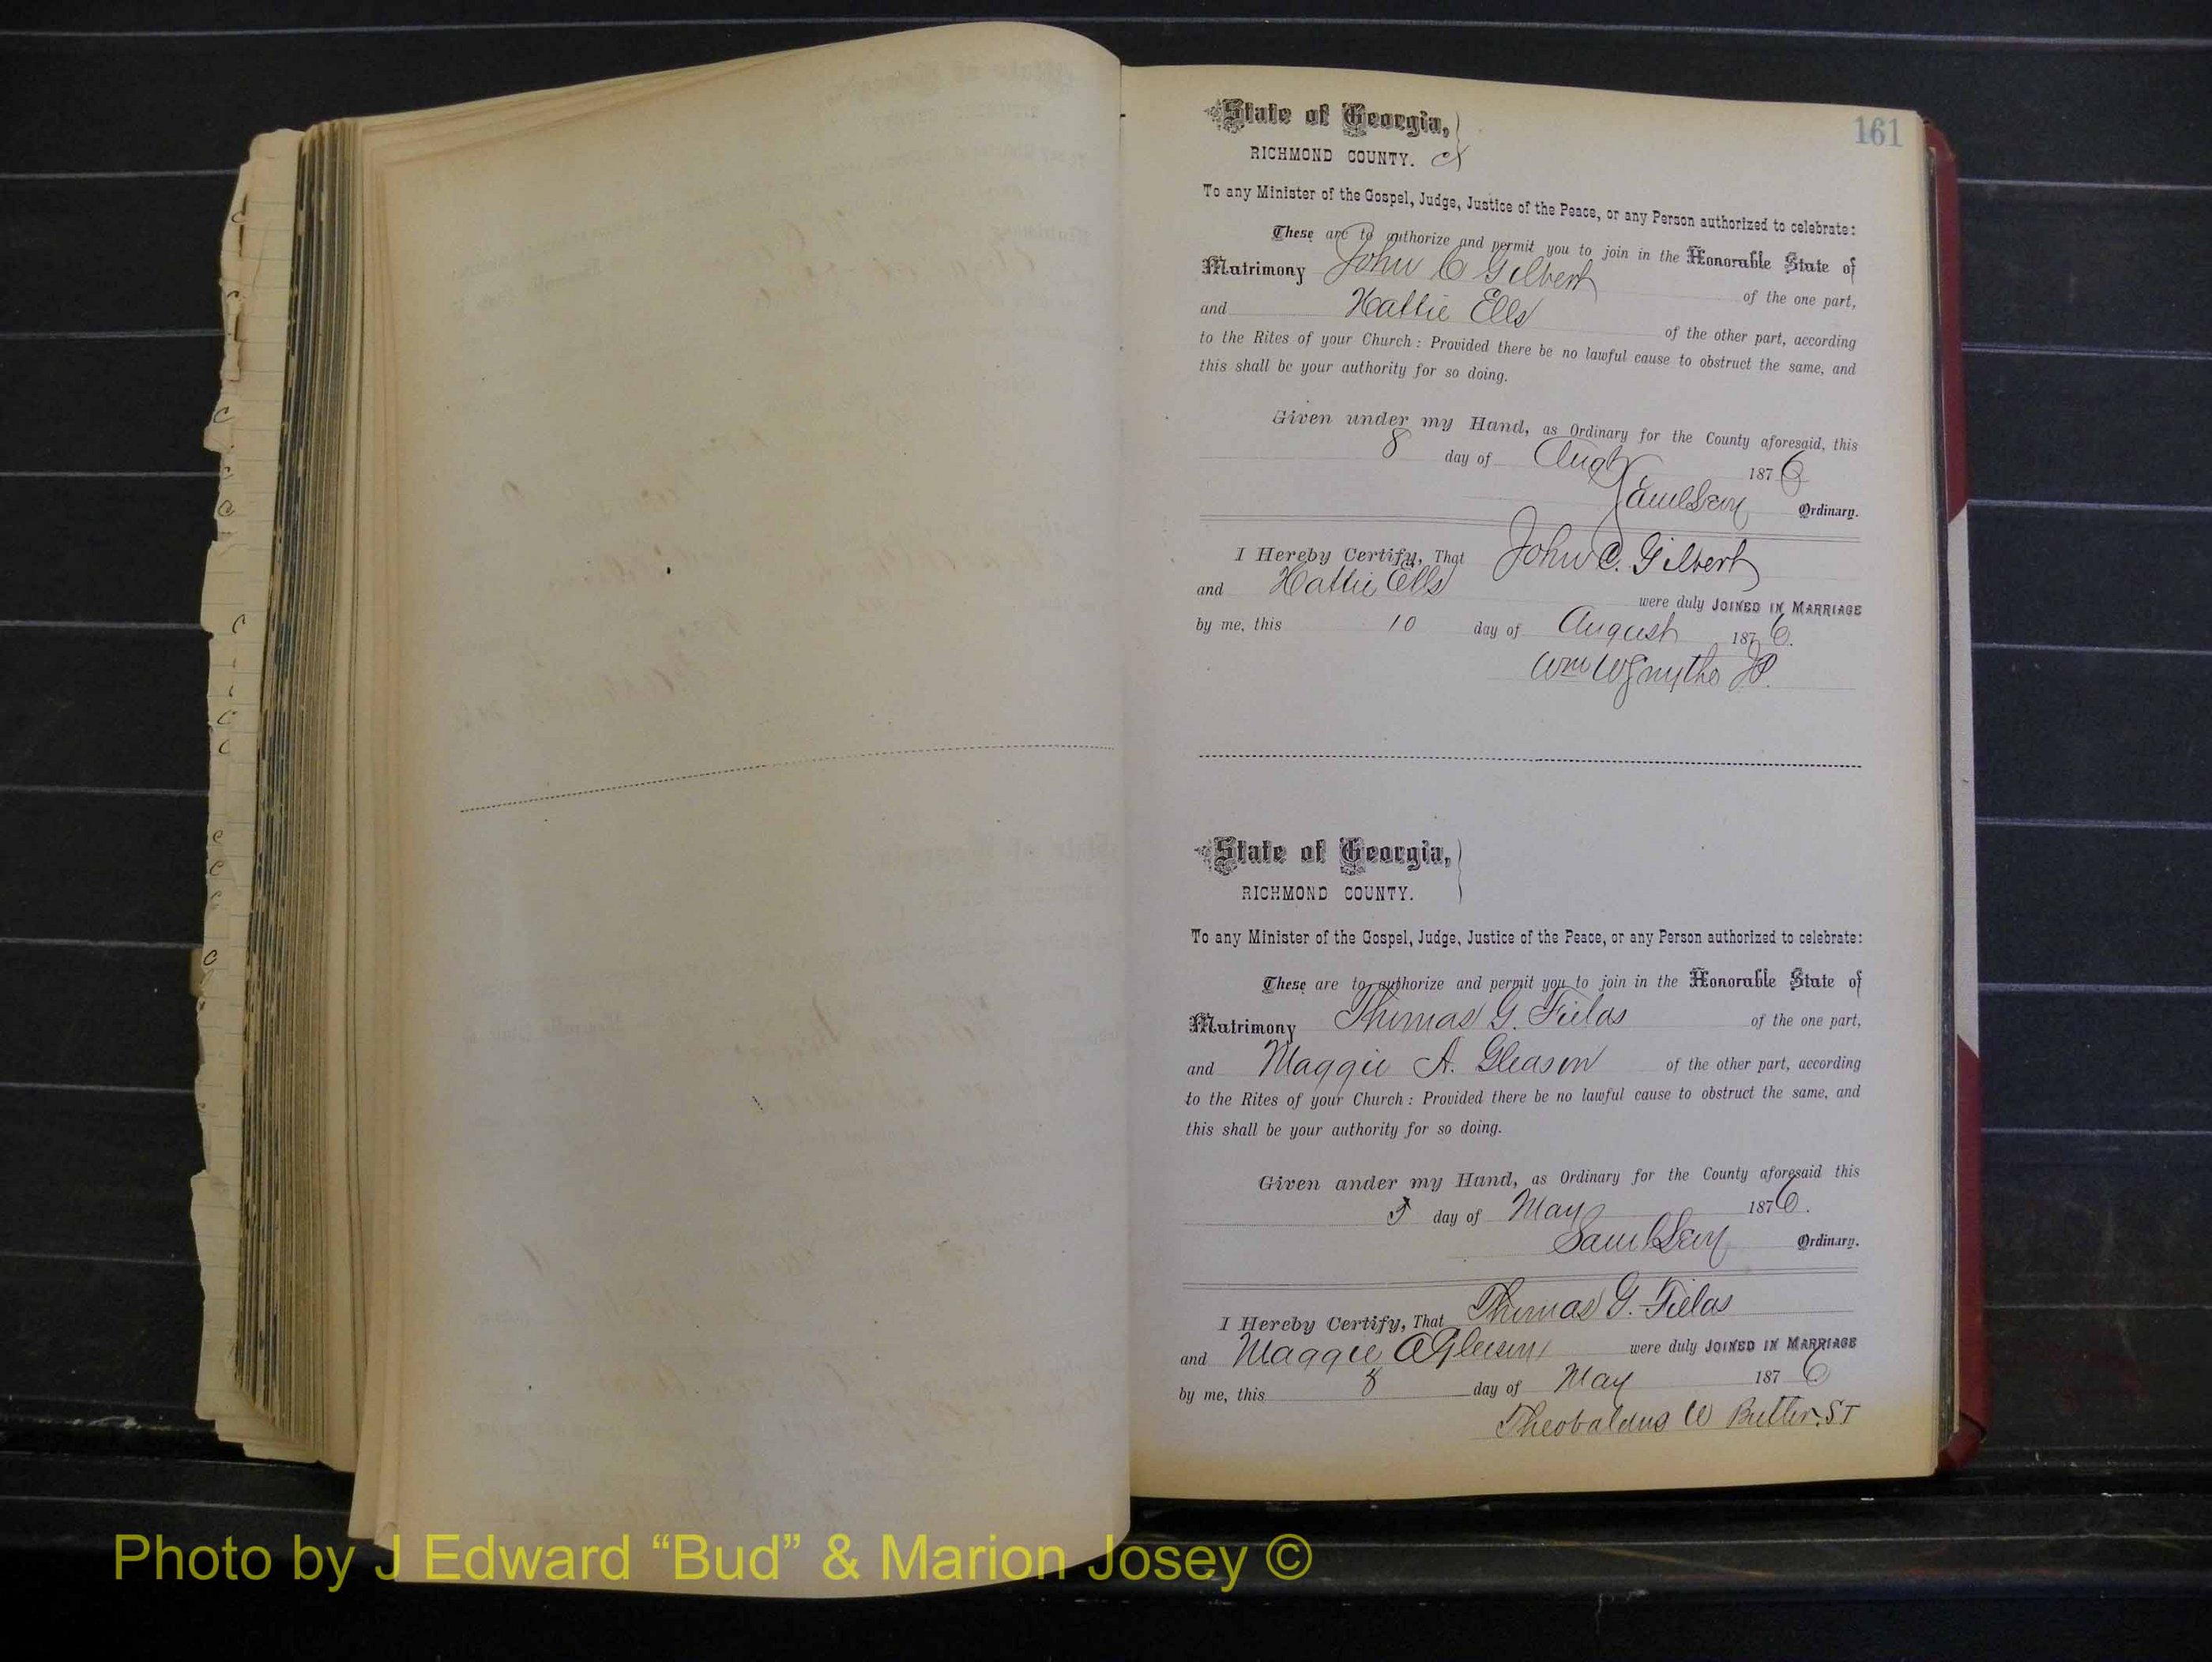 161
State of Georgia,
RICHMOND COUNTY.
To any Minister of the Gospel, Judge, Justice of the Peace, or any Person authorized to celebrate:
These are to authorize and permit you to join in the Honorable State of
Matrimony John C Gilbert of the one part,
and Hattie Ells of the other part, according
to the Rites of your Church: Provided there be no lawful cause to obstruct the same, and
this shall be your authority for so doing.
Given under my Hand, as Ordinary for the County aforesaid, this
8 day of Augt 1876
Saml Levy Ordinary.
I Hereby Certify, That John C. Gilbert
and Hattie Ells were duly JOINED IN MARRIAGE
by me, this 10 day of August 1876.
Wm W Smythe JP.
State of Georgia,
RICHMOND COUNTY.
To any Minister of the Gospel, Judge, Justice of the Peace, or any Person authorized to celebrate:
These are to authorize and permit you to join in the Honorable State of
Matrimony Thomas G. Fields of the one part,
and Maggie A. Gleason of the other part, according
to the Rites of your Church: Provided there be no lawful cause to obstruct the same, and
this shall be your authority for so doing.
Given under my Hand, as Ordinary for the County aforesaid this
5 day of May 1876.
Saml Levy Ordinary.
I Hereby Certify, That Thomas G. Fields
and Maggie A Gleason were duly JOINED IN MARRIAGE
by me, this 8 day of May 1876
Theobaldus W Butler. ST
Photo by J Edward “Bud” & Marion Josey ©